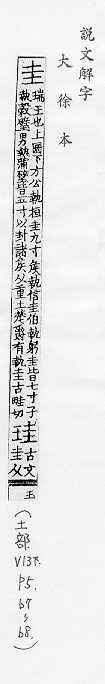 説文解字
大徐本
圭 瑞玉也上圜下方公執桓圭九寸矦執信圭伯執躬圭皆七寸子
執穀璧男執蒲璧皆五寸以封諸矦从重土楚爵有執圭古畦切
珪 古文圭从玉
（土部
V13下.
P5.
b7
b8.）